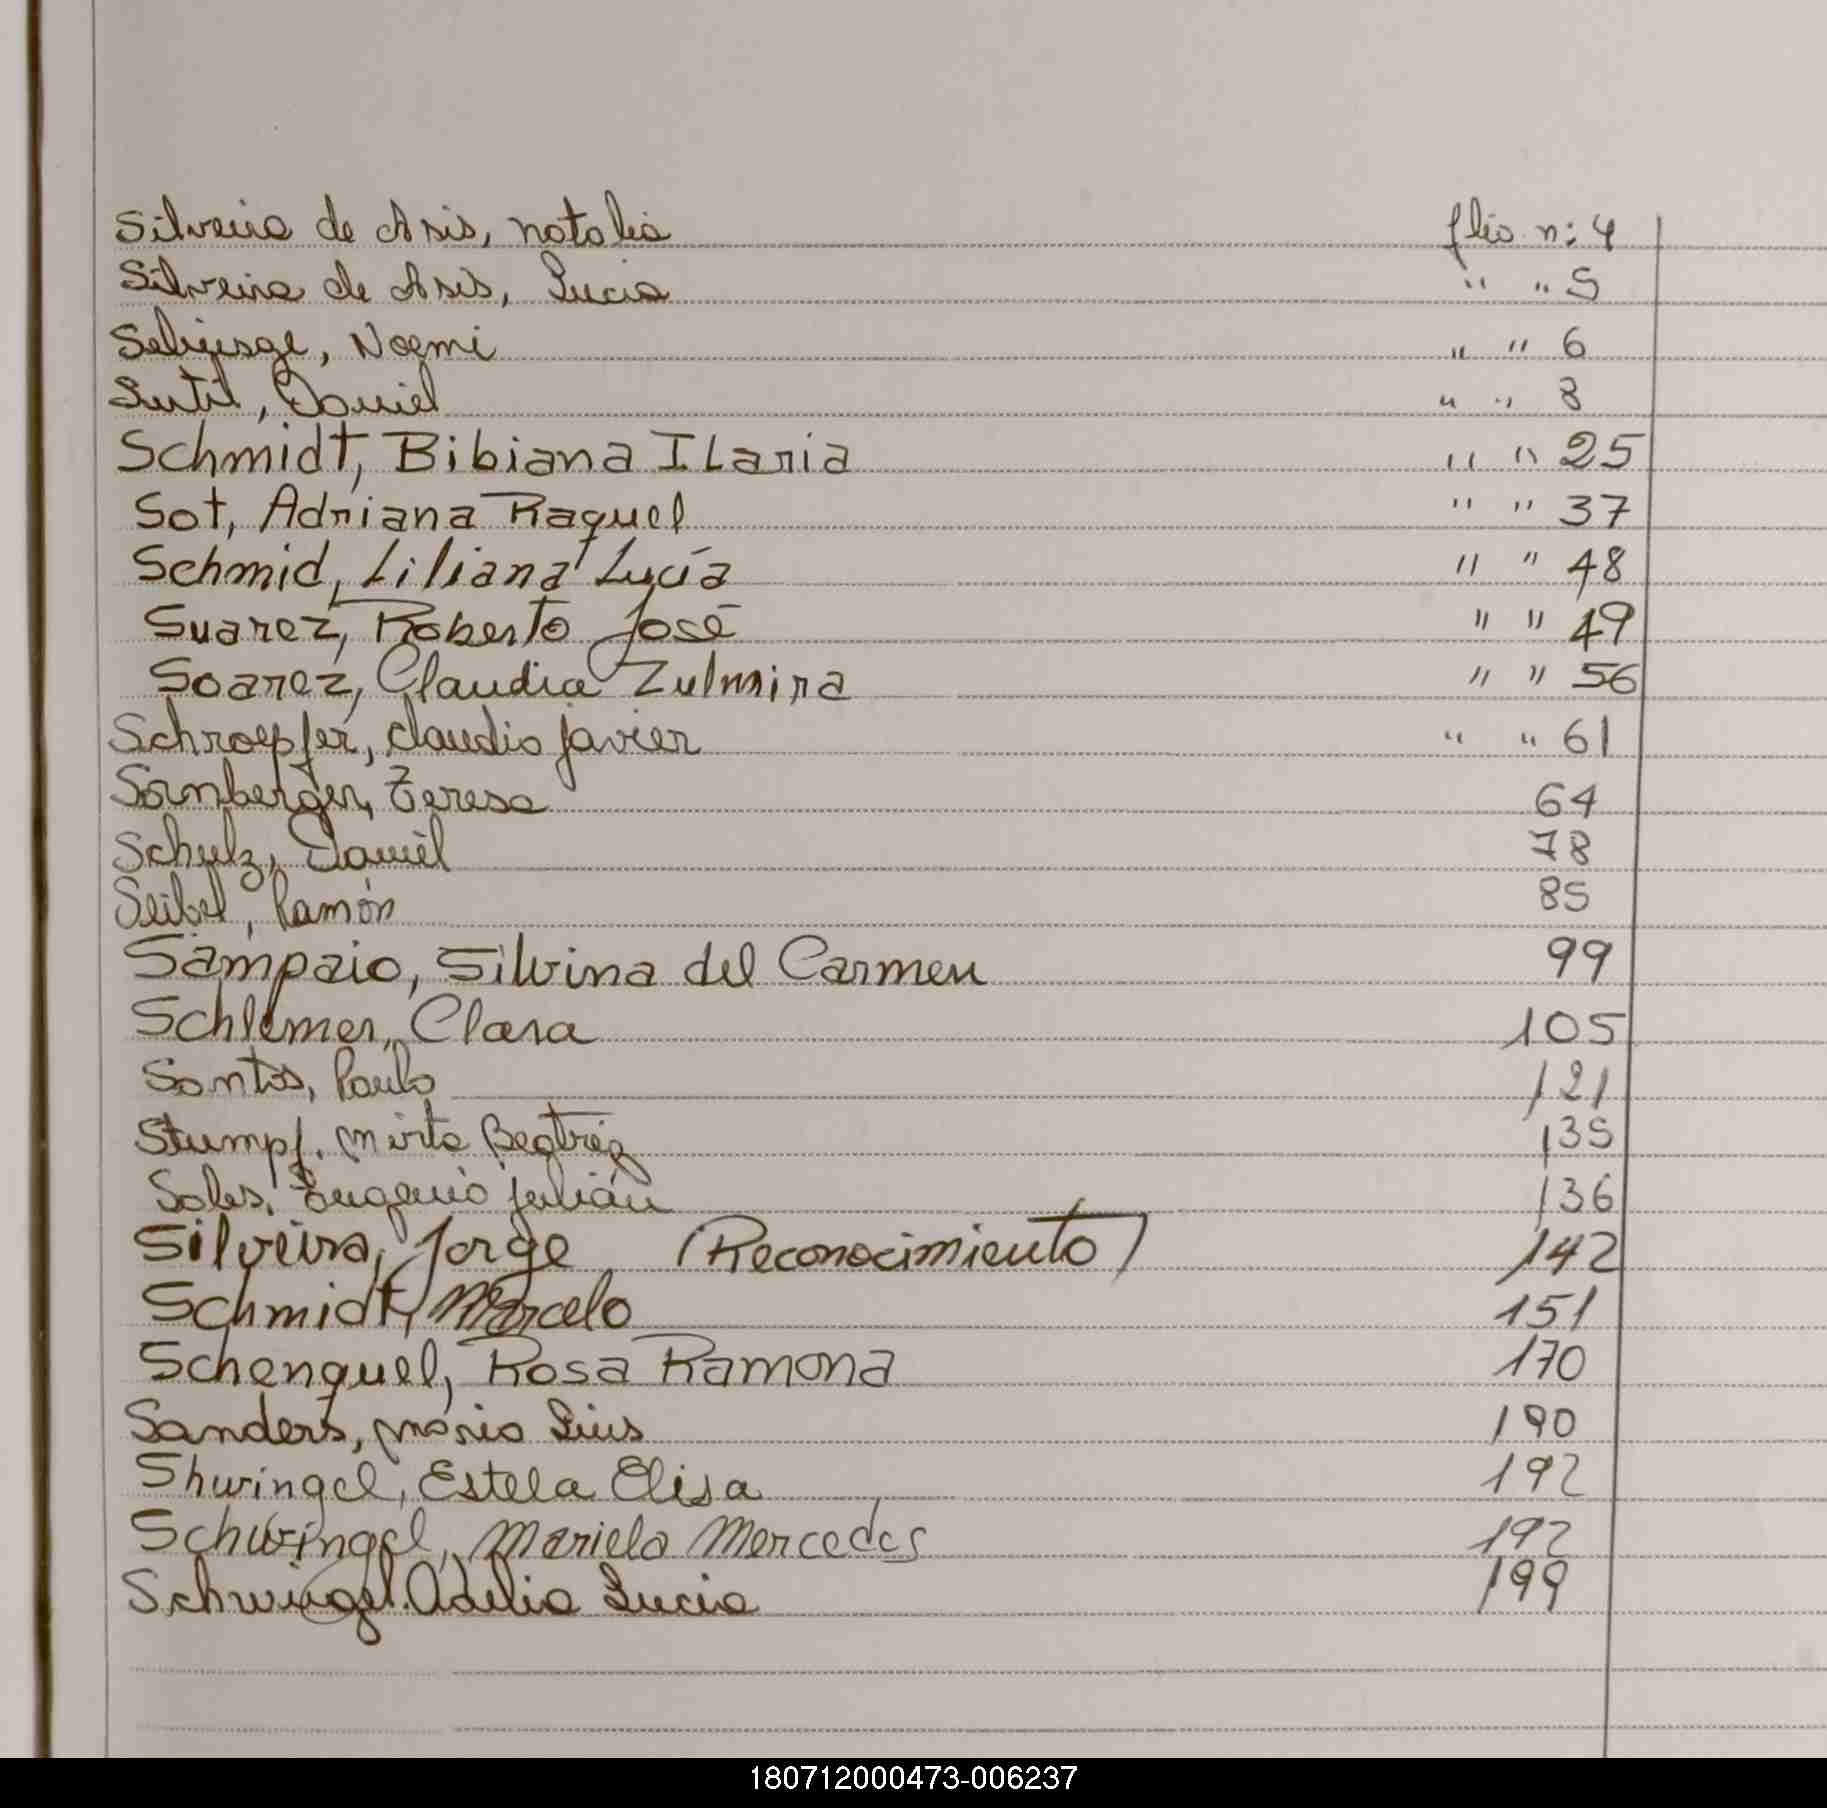 Silveira de Asis, Natalia flio n: 4
Silveira de Asis, Lucia " " 5
Noemi " " 6
Sutil, Daniel " " 8
Schmidt, Bibiana Ilaria " " 25
Sot, Adriana Raquel " " 37
Schmid, Liliana Lucía " " 48
Suarez, Roberto José " " 49
Soarez, Claudia Zulmira " " 56
Schroepfer, claudio javier " " 61
Sornberger, Teresa 64
Schulz, Daniel 78
Seibel, Ramón 85
Sampaio, Silvina del Carmen 99
Schlemer, Clara 105
Santos, Paulo 121
Stumpf. Mirta Beatriz 135
Eugenio julián 136
Silveira, Jorge (Reconocimiento) 142
Schmidt, Marcelo 151
Schenquel, Rosa Ramona 170
Sanders, Mario Luis 190
Shwingel, Estela Elisa 192
Schwingel, Mariela Mercedes 192
Schwingel. Adelia Lucia 199
180712000473-006237